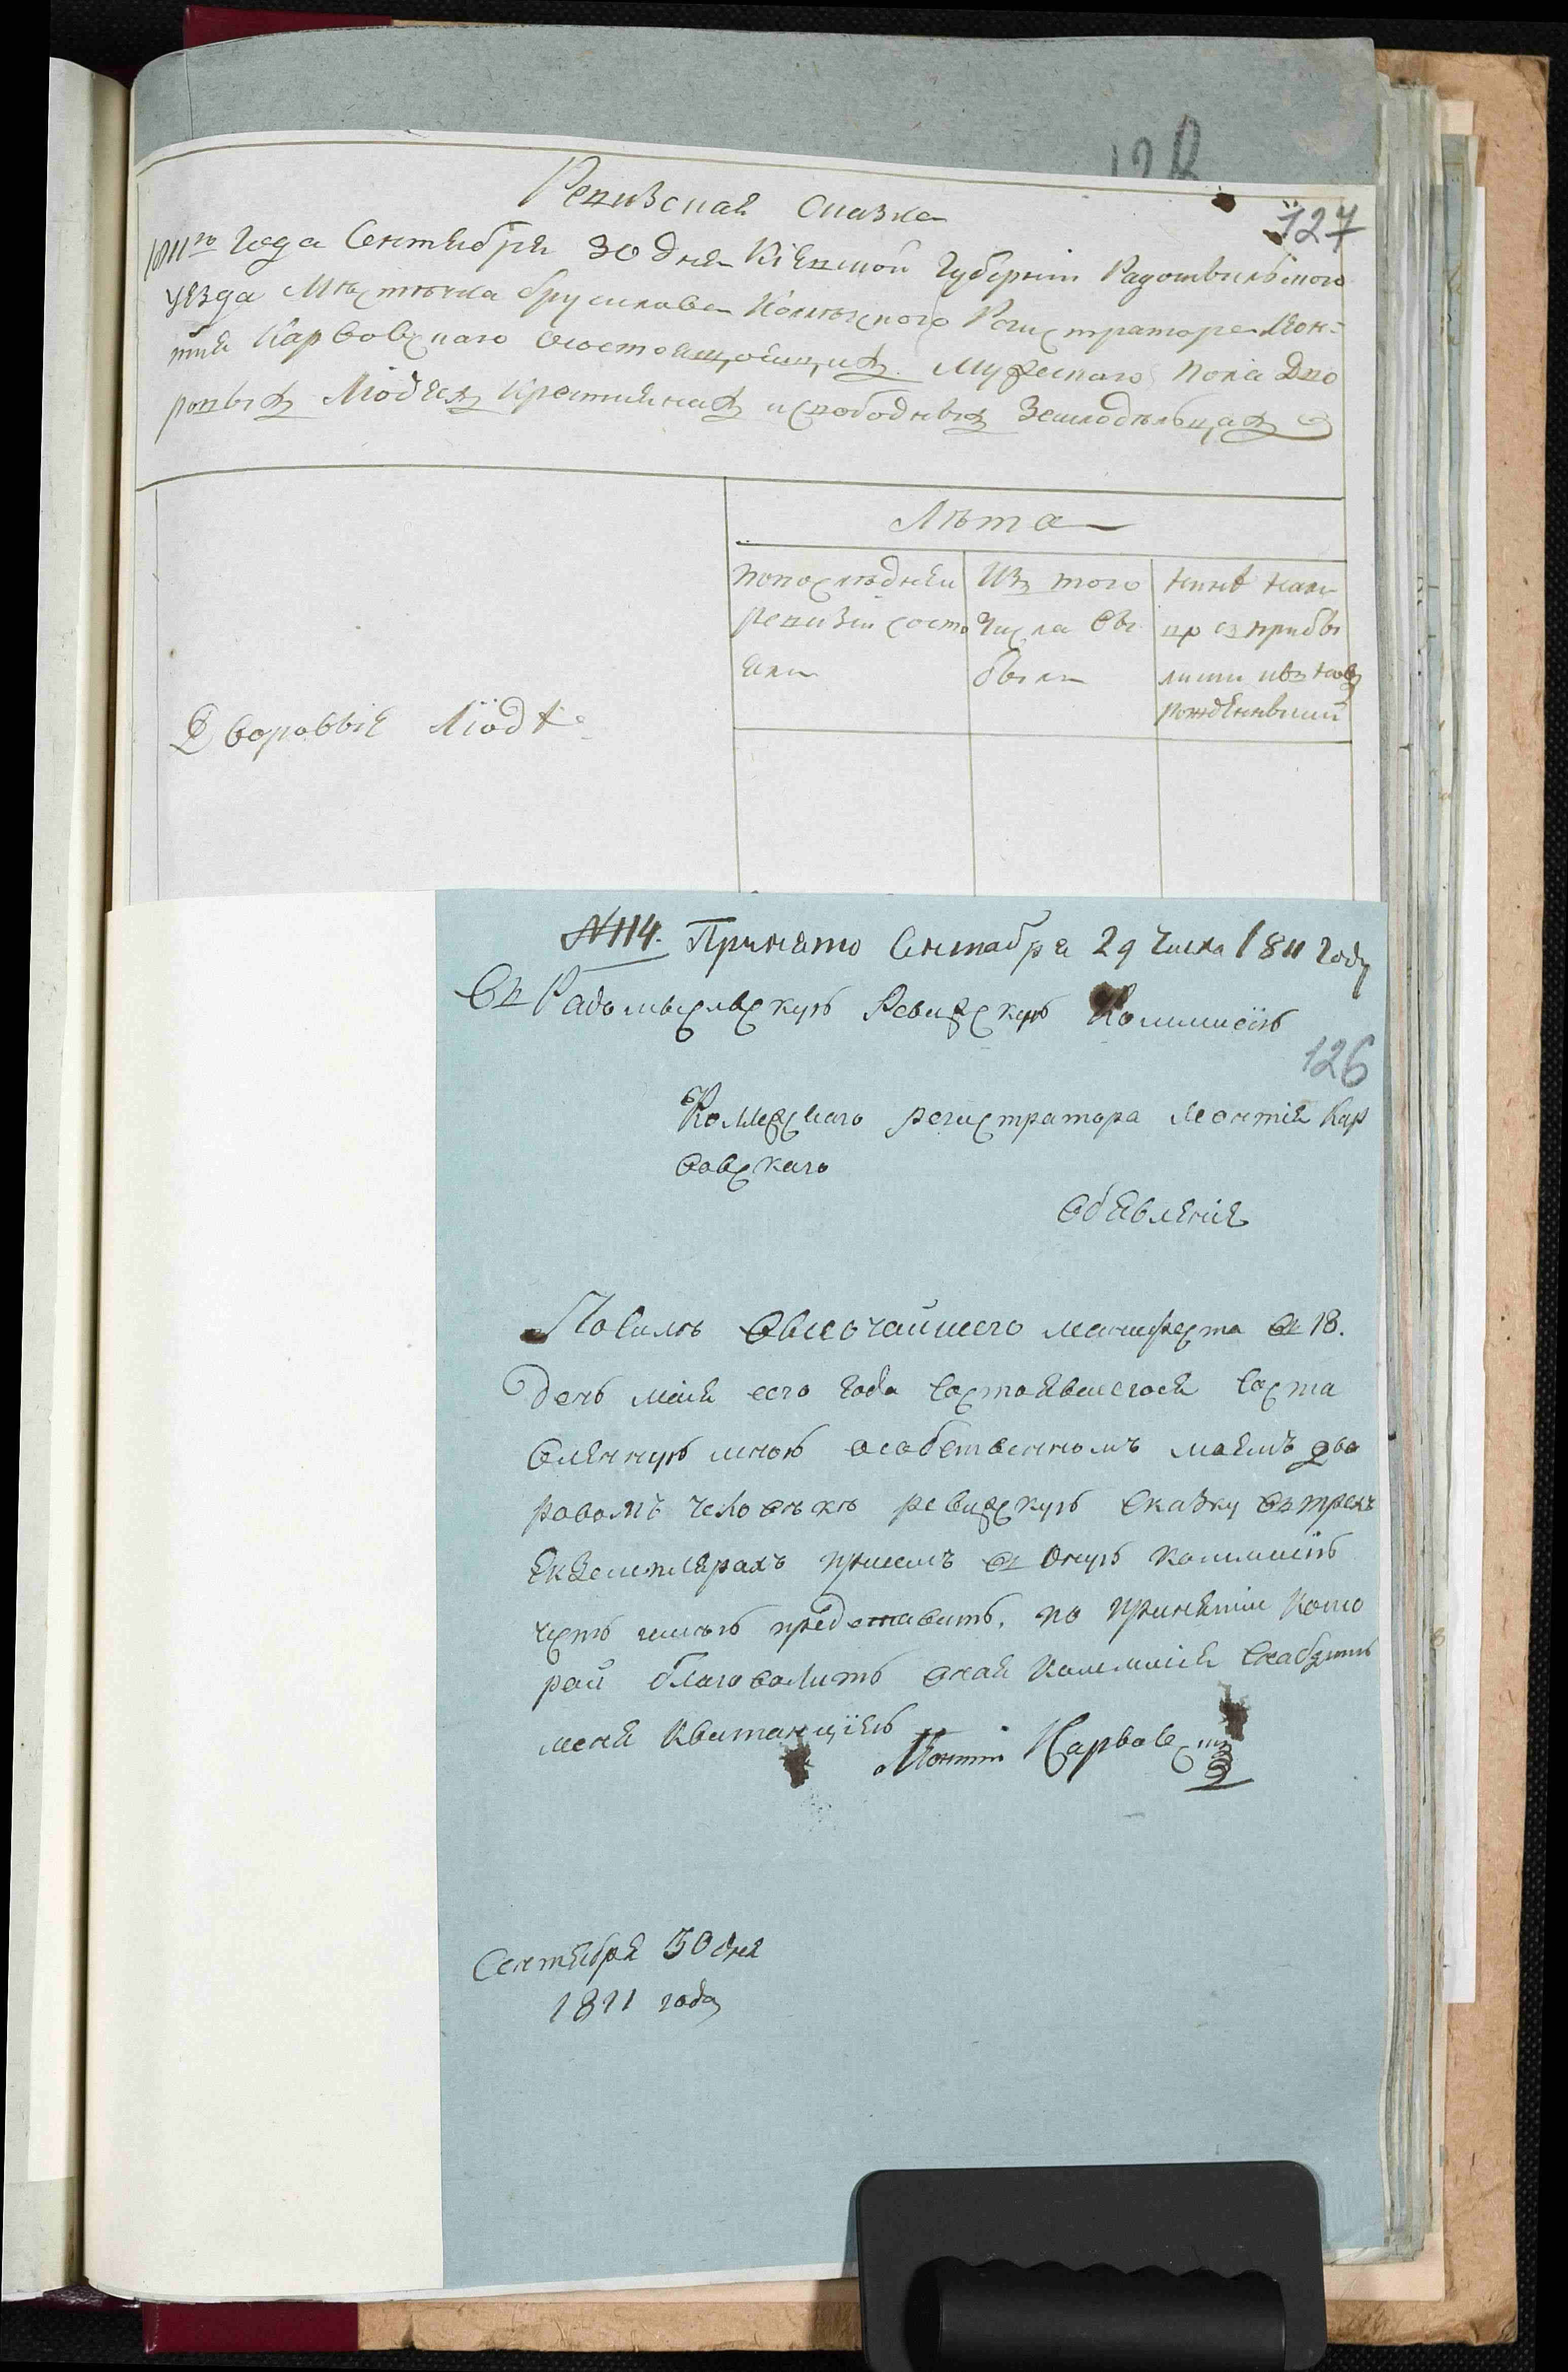 128
Ревизская сказка
127
1811го Года Сентября 30 дня Кіевской Губерніи Радомысльского
уезда Мѣстечка брусилова Колежского Регистратора Леон-
тия Карвовского Мужескаго пола Дво
ровых Людях Крестиянах и свободных Земледѣльцах
Лѣта
Дворовые Люде
попослѣдней
ревизіи состо
яли
Из того
Числа вы
были
нинѣ нали
цо
рожденными
№ 114. Принято Сентабря 29 Числа 1811 Году
Въ Радомысльскую Ревизскую Коммисію
126
Колежскаго регистратора Леонтія Кар
вовскаго
Обявленіе
По Силѣ высочайшего манифеста въ 18.
день маія сего года состоявшегося соста
вленную мною особственномъ моемъ дво
ровомъ человѣкѣ ревизскую сказку в трехъ
екземплярахъ присемъ въ Оную коммисію
честь имѣю представить, по принятіи Кото
рой благоволитъ оная коммисія снабдить
меня Квитанціею
Леонтій Карвовскій
Сентября 30 дня
1811 года